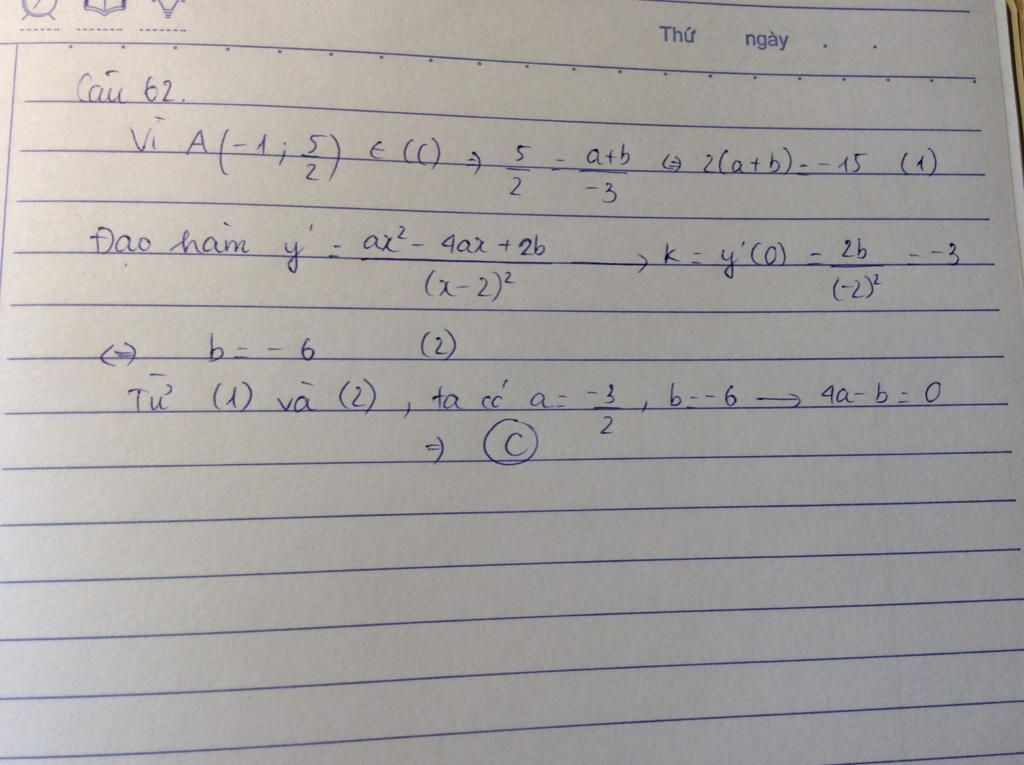 Thứ ngày . .
Câu 62.
Vì A(-1; 5/2) ∈ (C) ⇒ 5/2 = a+b/-3 ⇔ 2(a+b) = -15 (1)
Đạo hàm y' = ax² - 4ax + 2b/(x-2)² → k = y'(0) = 2b/(-2)² = -3
⇔ b = -6 (2)
Từ (1) và (2), ta có a = -3/2, b = -6 → 4a - b = 0
⇒ C